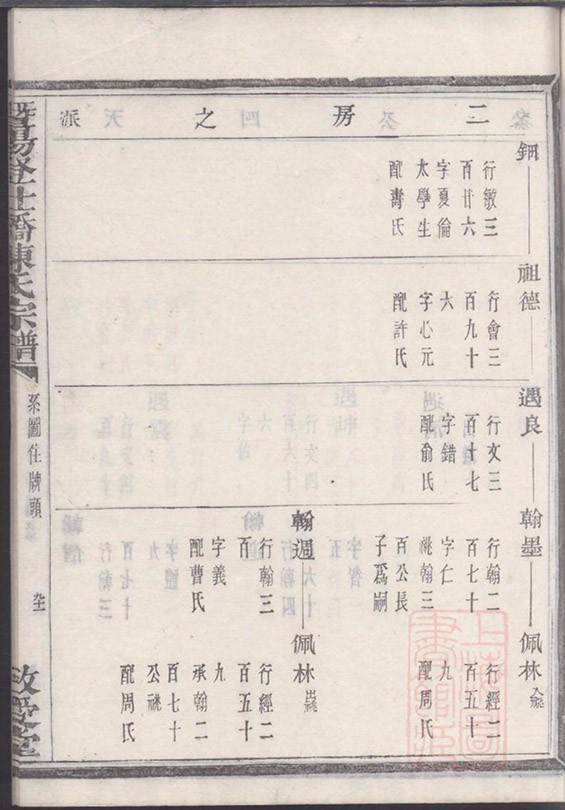 二房之派
鈿
行敏三
百廿六
字夏倫
太學生
配壽氏
祖德
行會三
百九十
六
字心元
配許氏
遇良
行文三
百十七
字錯
配俞氏
翰墨
行翰二
百七十
字仁
祧翰三
百公長
子爲嗣
翰週
行翰三
百
字義
配曹氏
佩林
行經二
百五十
九
配周氏
佩林
行經二
百五十
九
承翰二
百七十
公祧
配周氏
暨陽登仕橋陳氏宗譜
系圖住牌頭
敘愛堂